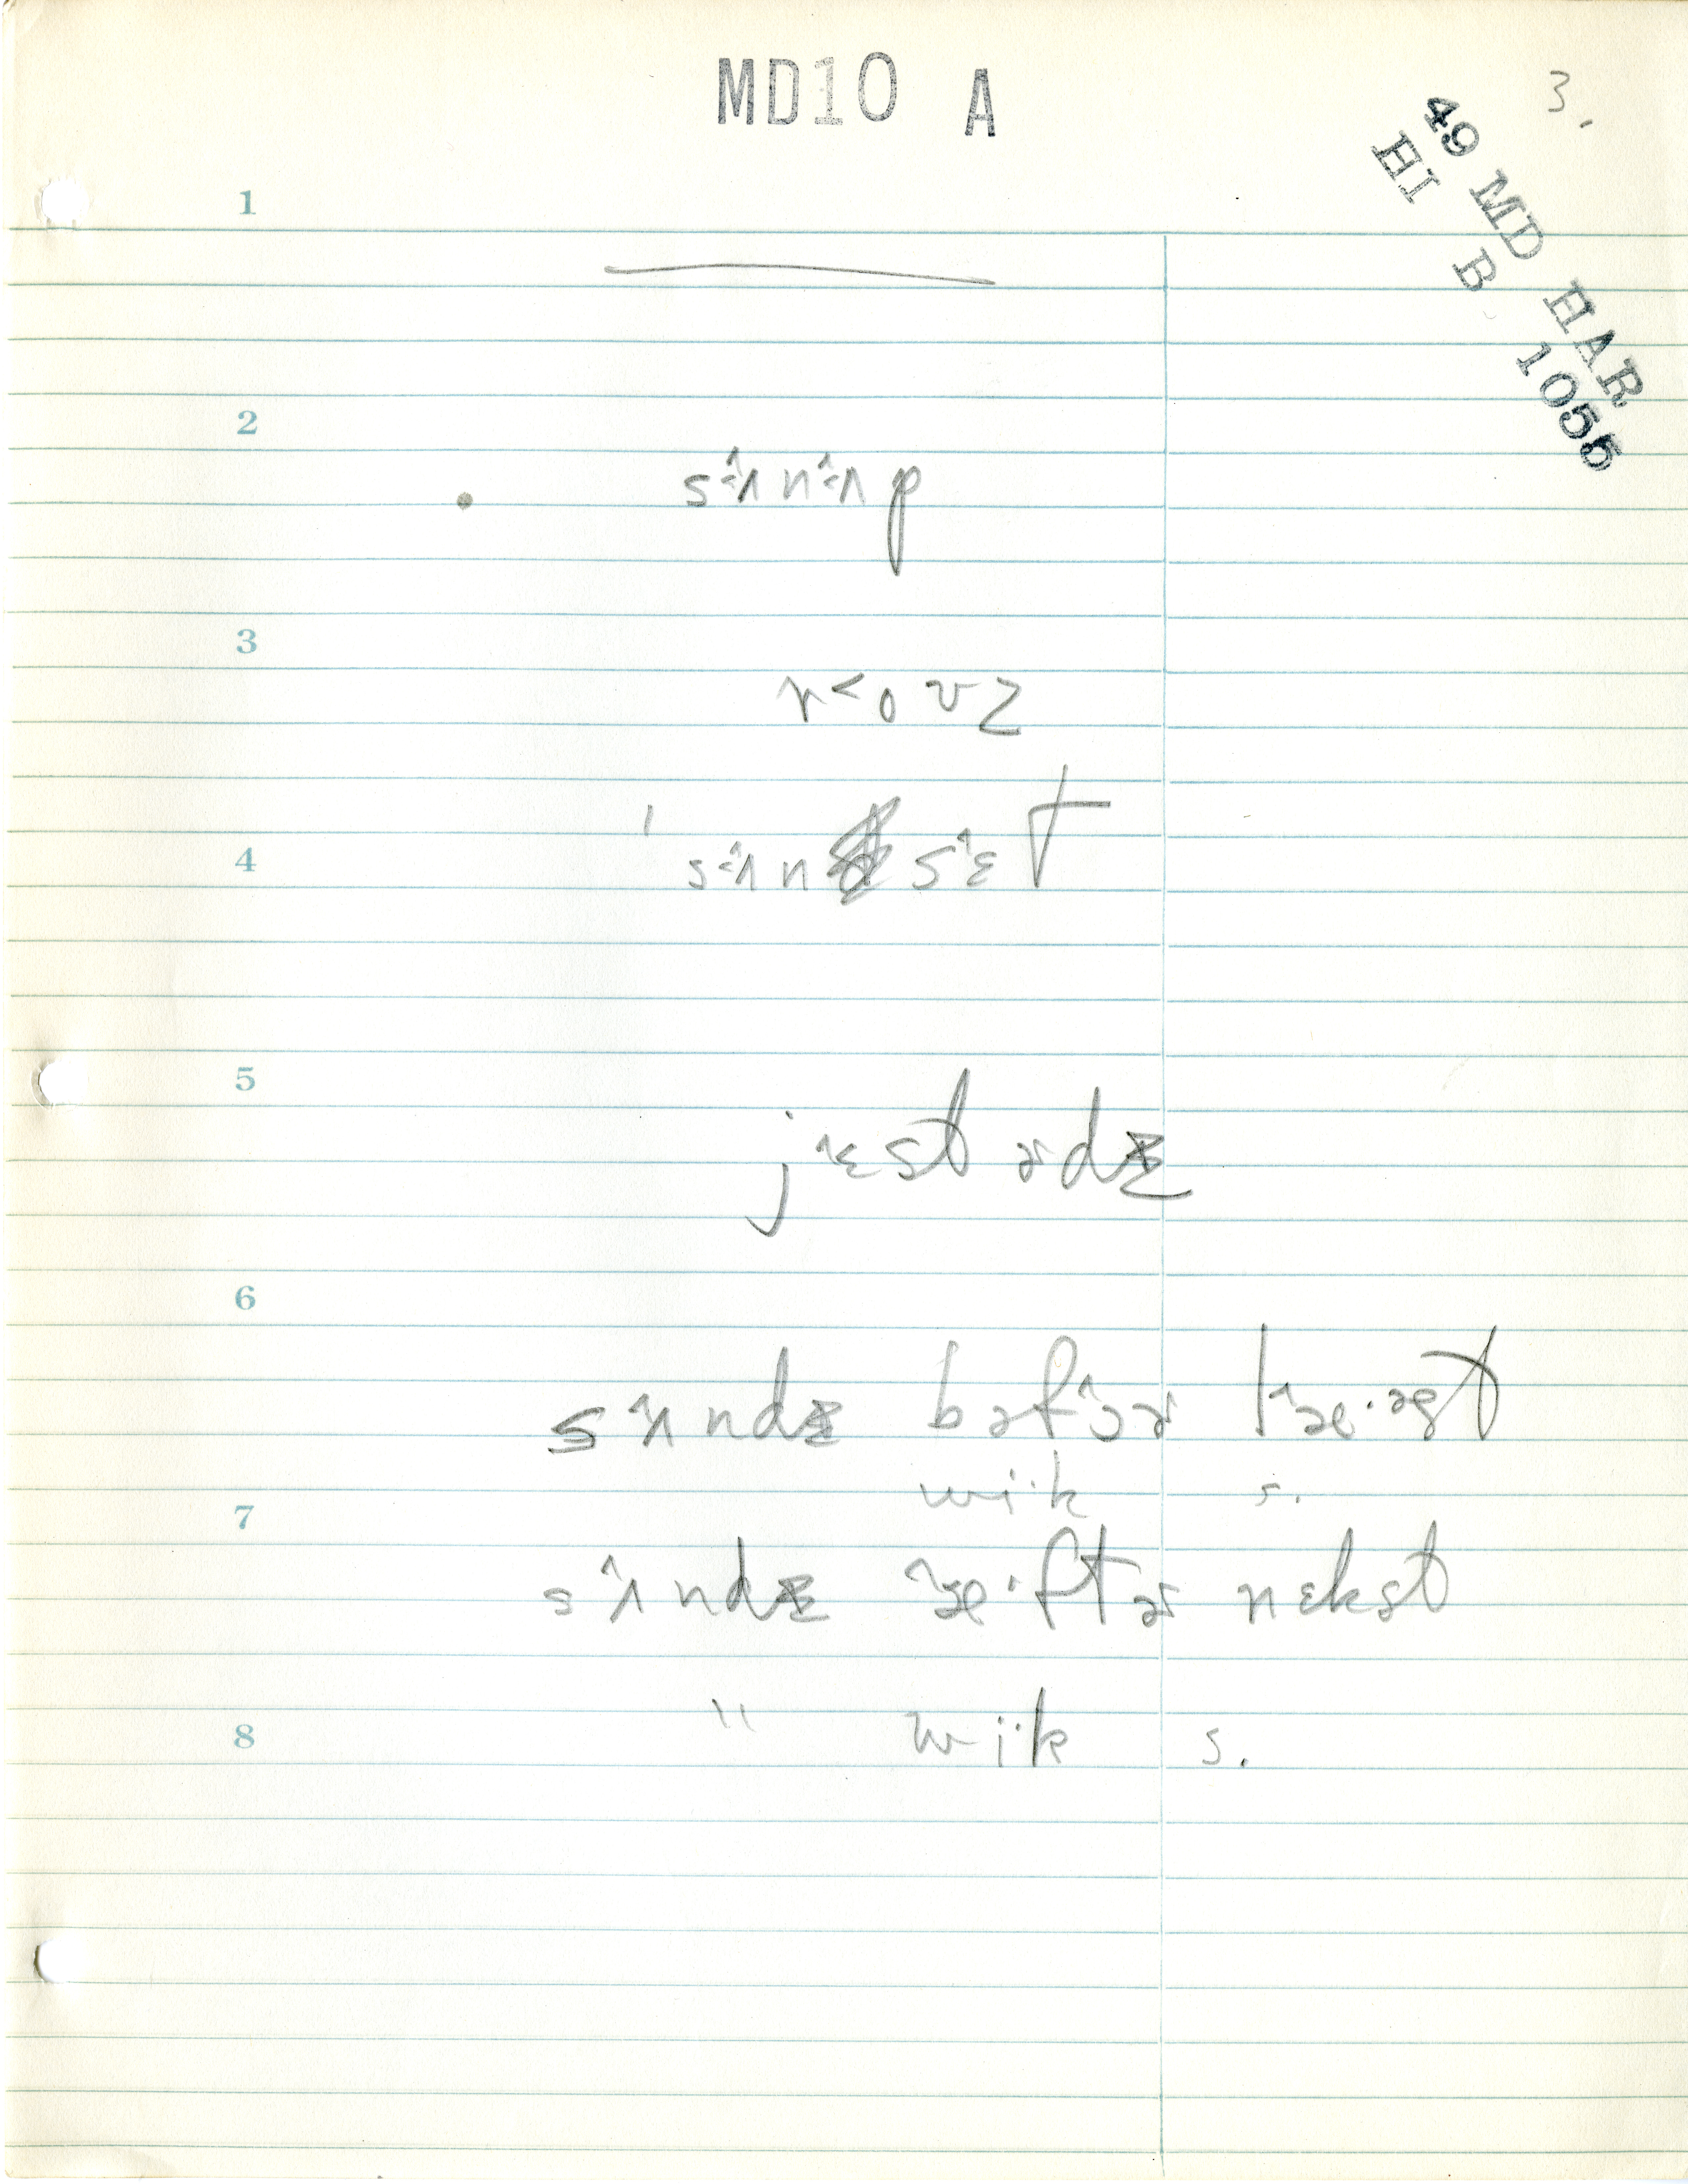 MD10 A
3.
49 MD HAR
HI B 1055
1
2
sɨ̂ʌnɨ̂ʌp
3
r<ovz
4
sɨ̂ʌn sɛ̂t
5
jɛ̂stɚdz̥
6
sʌ̂ndz̥ bəfɔ̂ɚ læ̂·əst
wi·k s.
7
sʌ̂ndz̥ æ̂·ftɚ nɛkst
8
" wi·k s.